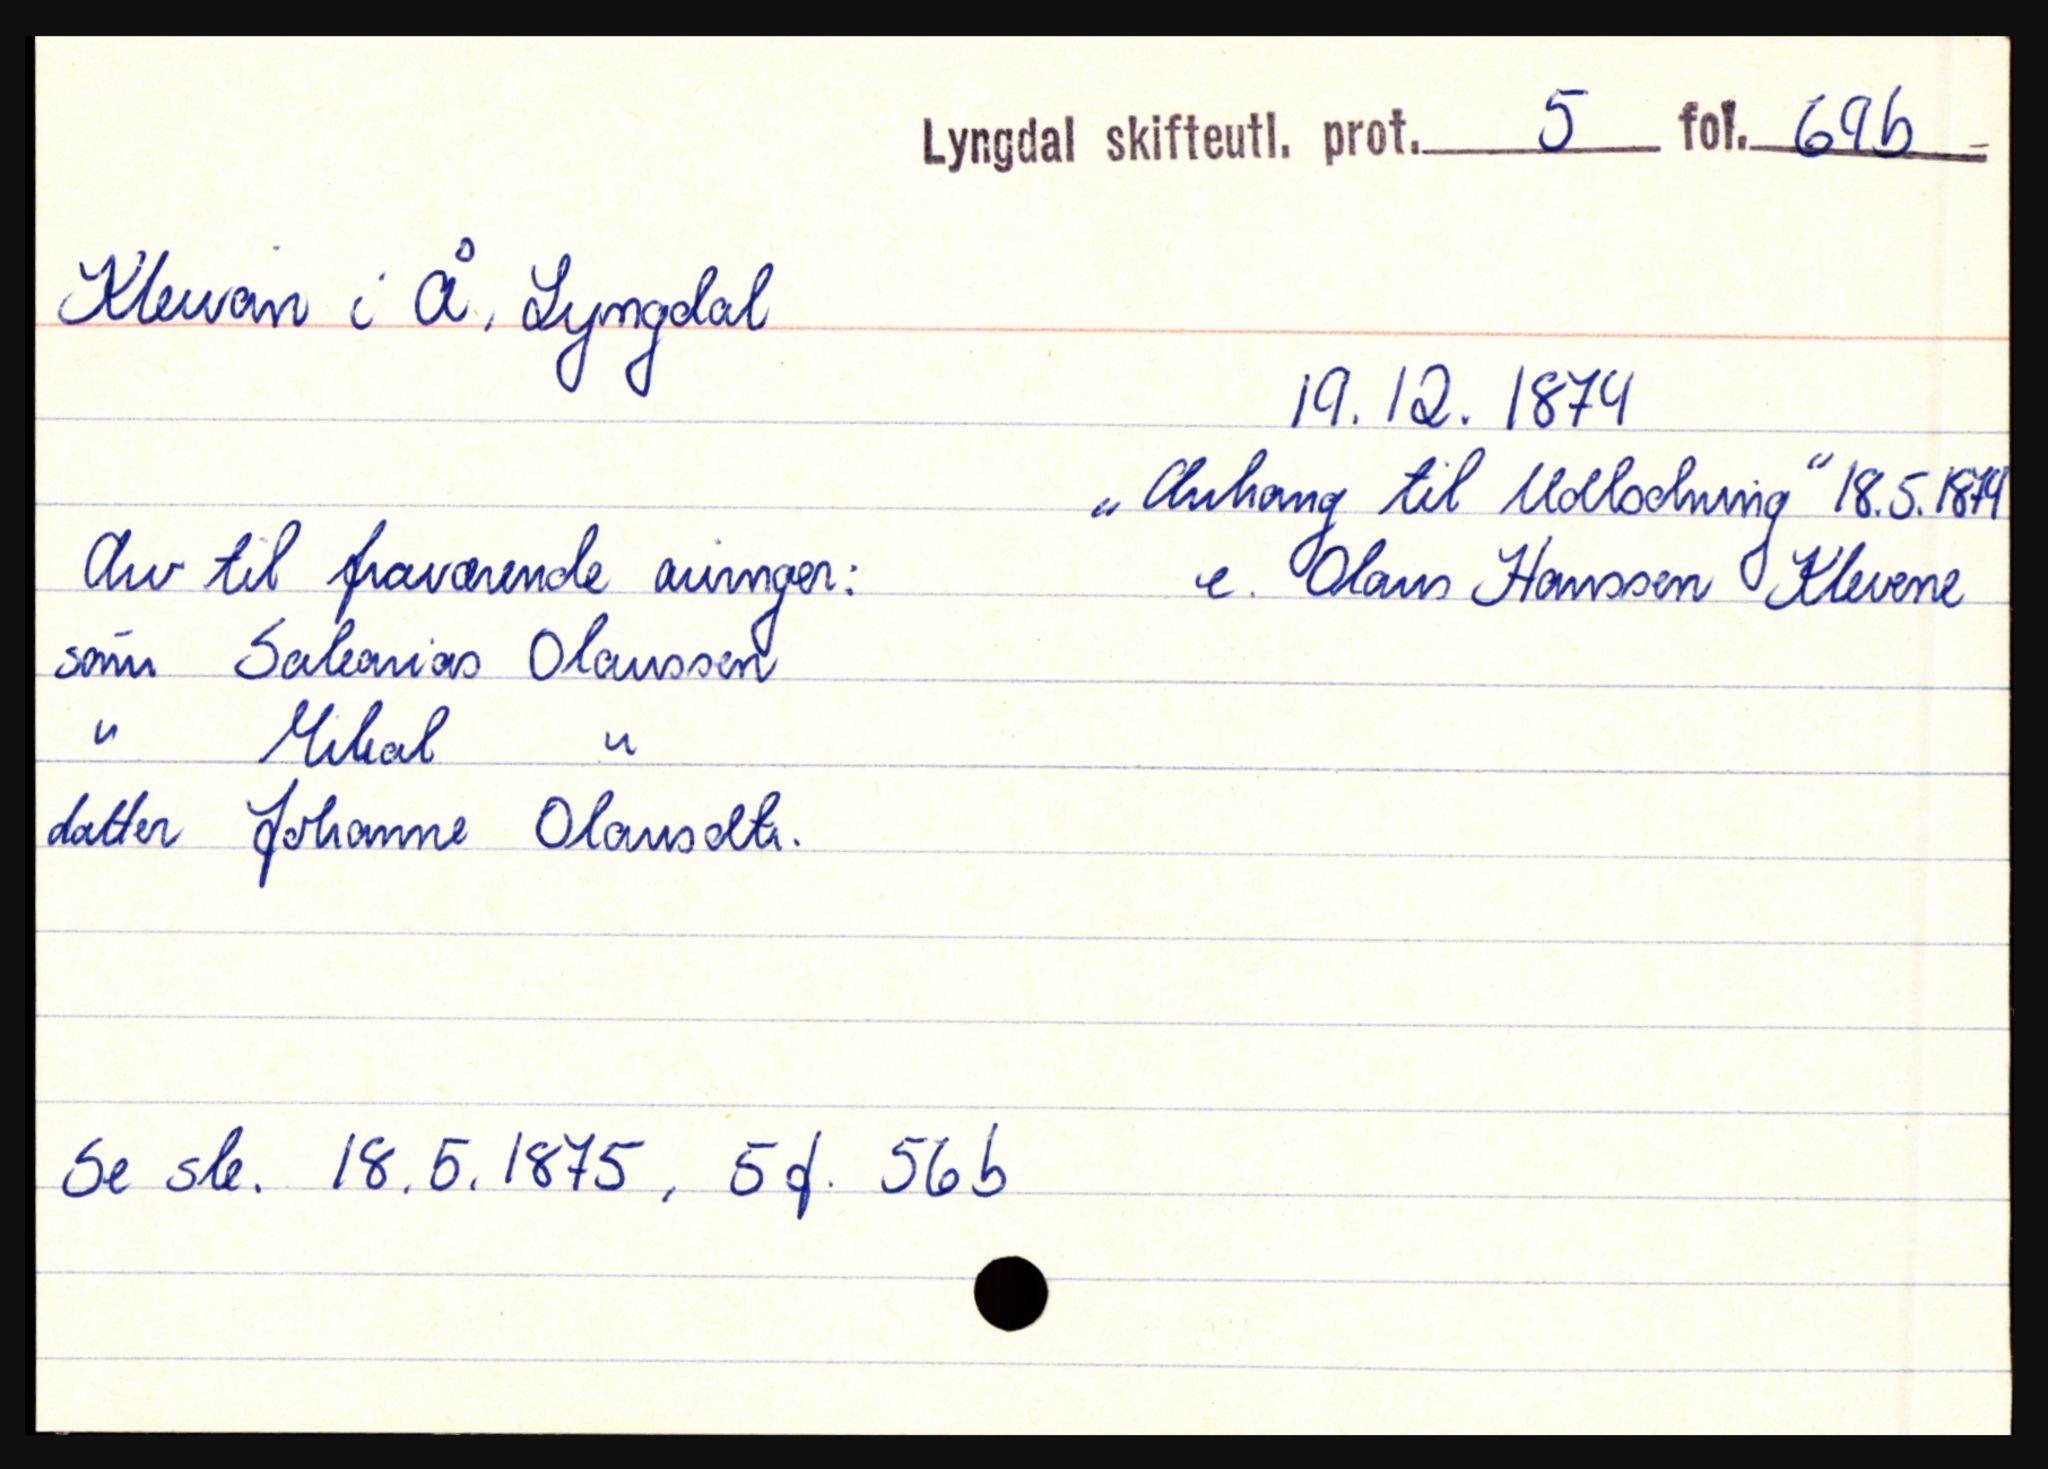 Lyngdal skifteutl. prot. 5 fol. 69b
Klevan i Å, Lyngdal
19.12.1874
„Anhang til Udlodning“ 18.5.1874
Arv til fraværende arvinger:
e. Olaus Hanssen Klevene
sønn Sakarias Olaussen
" Mikal "
datter Johanne Olausdtr.
Se sk. 18.5.1875, 5 f. 56b